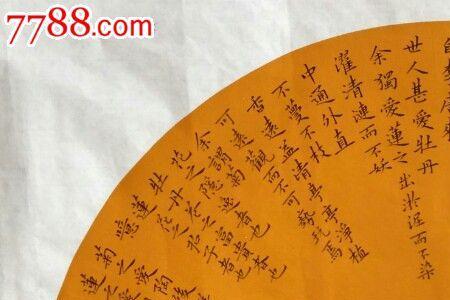 7788.com
世人甚愛牡丹
余獨愛蓮之出淤泥而不染
濯清漣而不妖
中通外直
不蔓不枝亭亭淨植
香遠益清
可遠觀而不可
余謂菊
牡丹花之富貴者也
蓮花之君子者也
噫
菊之愛陶後
蓮之愛